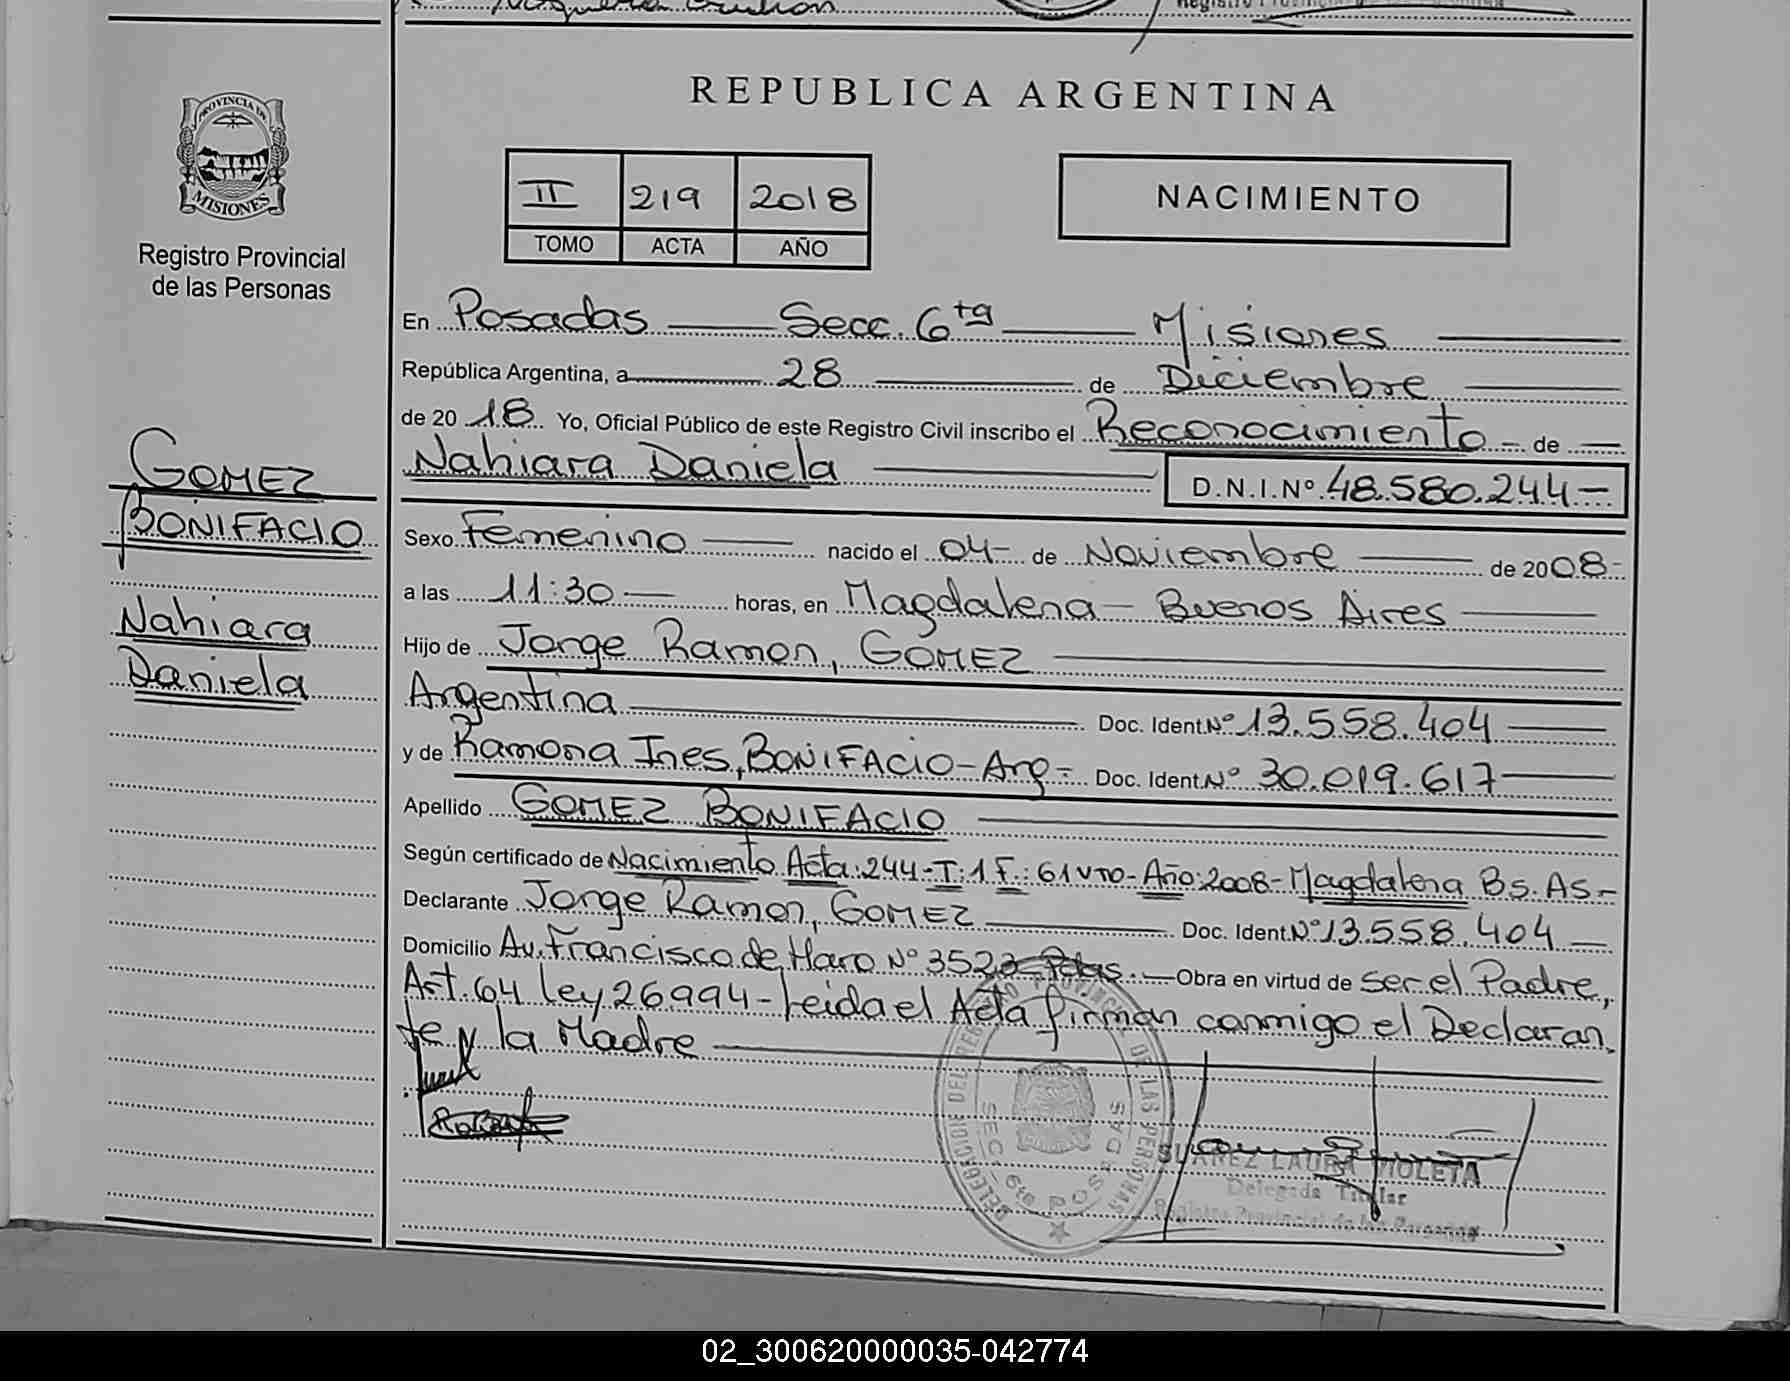 REPUBLICA ARGENTINA
PROVINCIA DE
MISIONES
Registro Provincial
de las Personas
II 219 2018
TOMO ACTA AÑO
NACIMIENTO
GOMEZ
BONIFACIO
Nahiara
Daniela
En Posadas Secc. 6ta Misiones
República Argentina, a 28 de Diciembre
de 2018 Yo, Oficial Público de este Registro Civil inscribo el Reconocimiento - de
Nahiara Daniela D.N.I.Nº 48.580.244-
Sexo Femenino nacido el 04- de Noviembre de 2008-
a las 11:30 horas, en Magdalena - Buenos Aires
Hijo de Jorge Ramon, GOMEZ
Argentina Doc. Ident.Nº 13.558.404
y de Ramona Ines, BONIFACIO - Arg - Doc. Ident.Nº 30.019.617
Apellido GOMEZ BONIFACIO
Según certificado de Nacimiento Acta: 244-T: 1 F: 61 vto- Año: 2008- Magdalena Bs. As-
Declarante Jorge Ramon, GOMEZ Doc. Ident.Nº 13.558.404
Domicilio Av. Francisco de Haro Nº 3523 Pdas. Obra en virtud de ser el Padre,
Art. 64 ley 26994- leida el Acta firman conmigo el Declaran
te y la Madre
DELEGACION DEL REGISTRO PROVINCIAL DE LAS PERSONAS
SECC. 6ta POSADAS
SUAREZ LAURA VIOLETA
Delegada Titular
Registro Provincial de las Personas
02_300620000035-042774